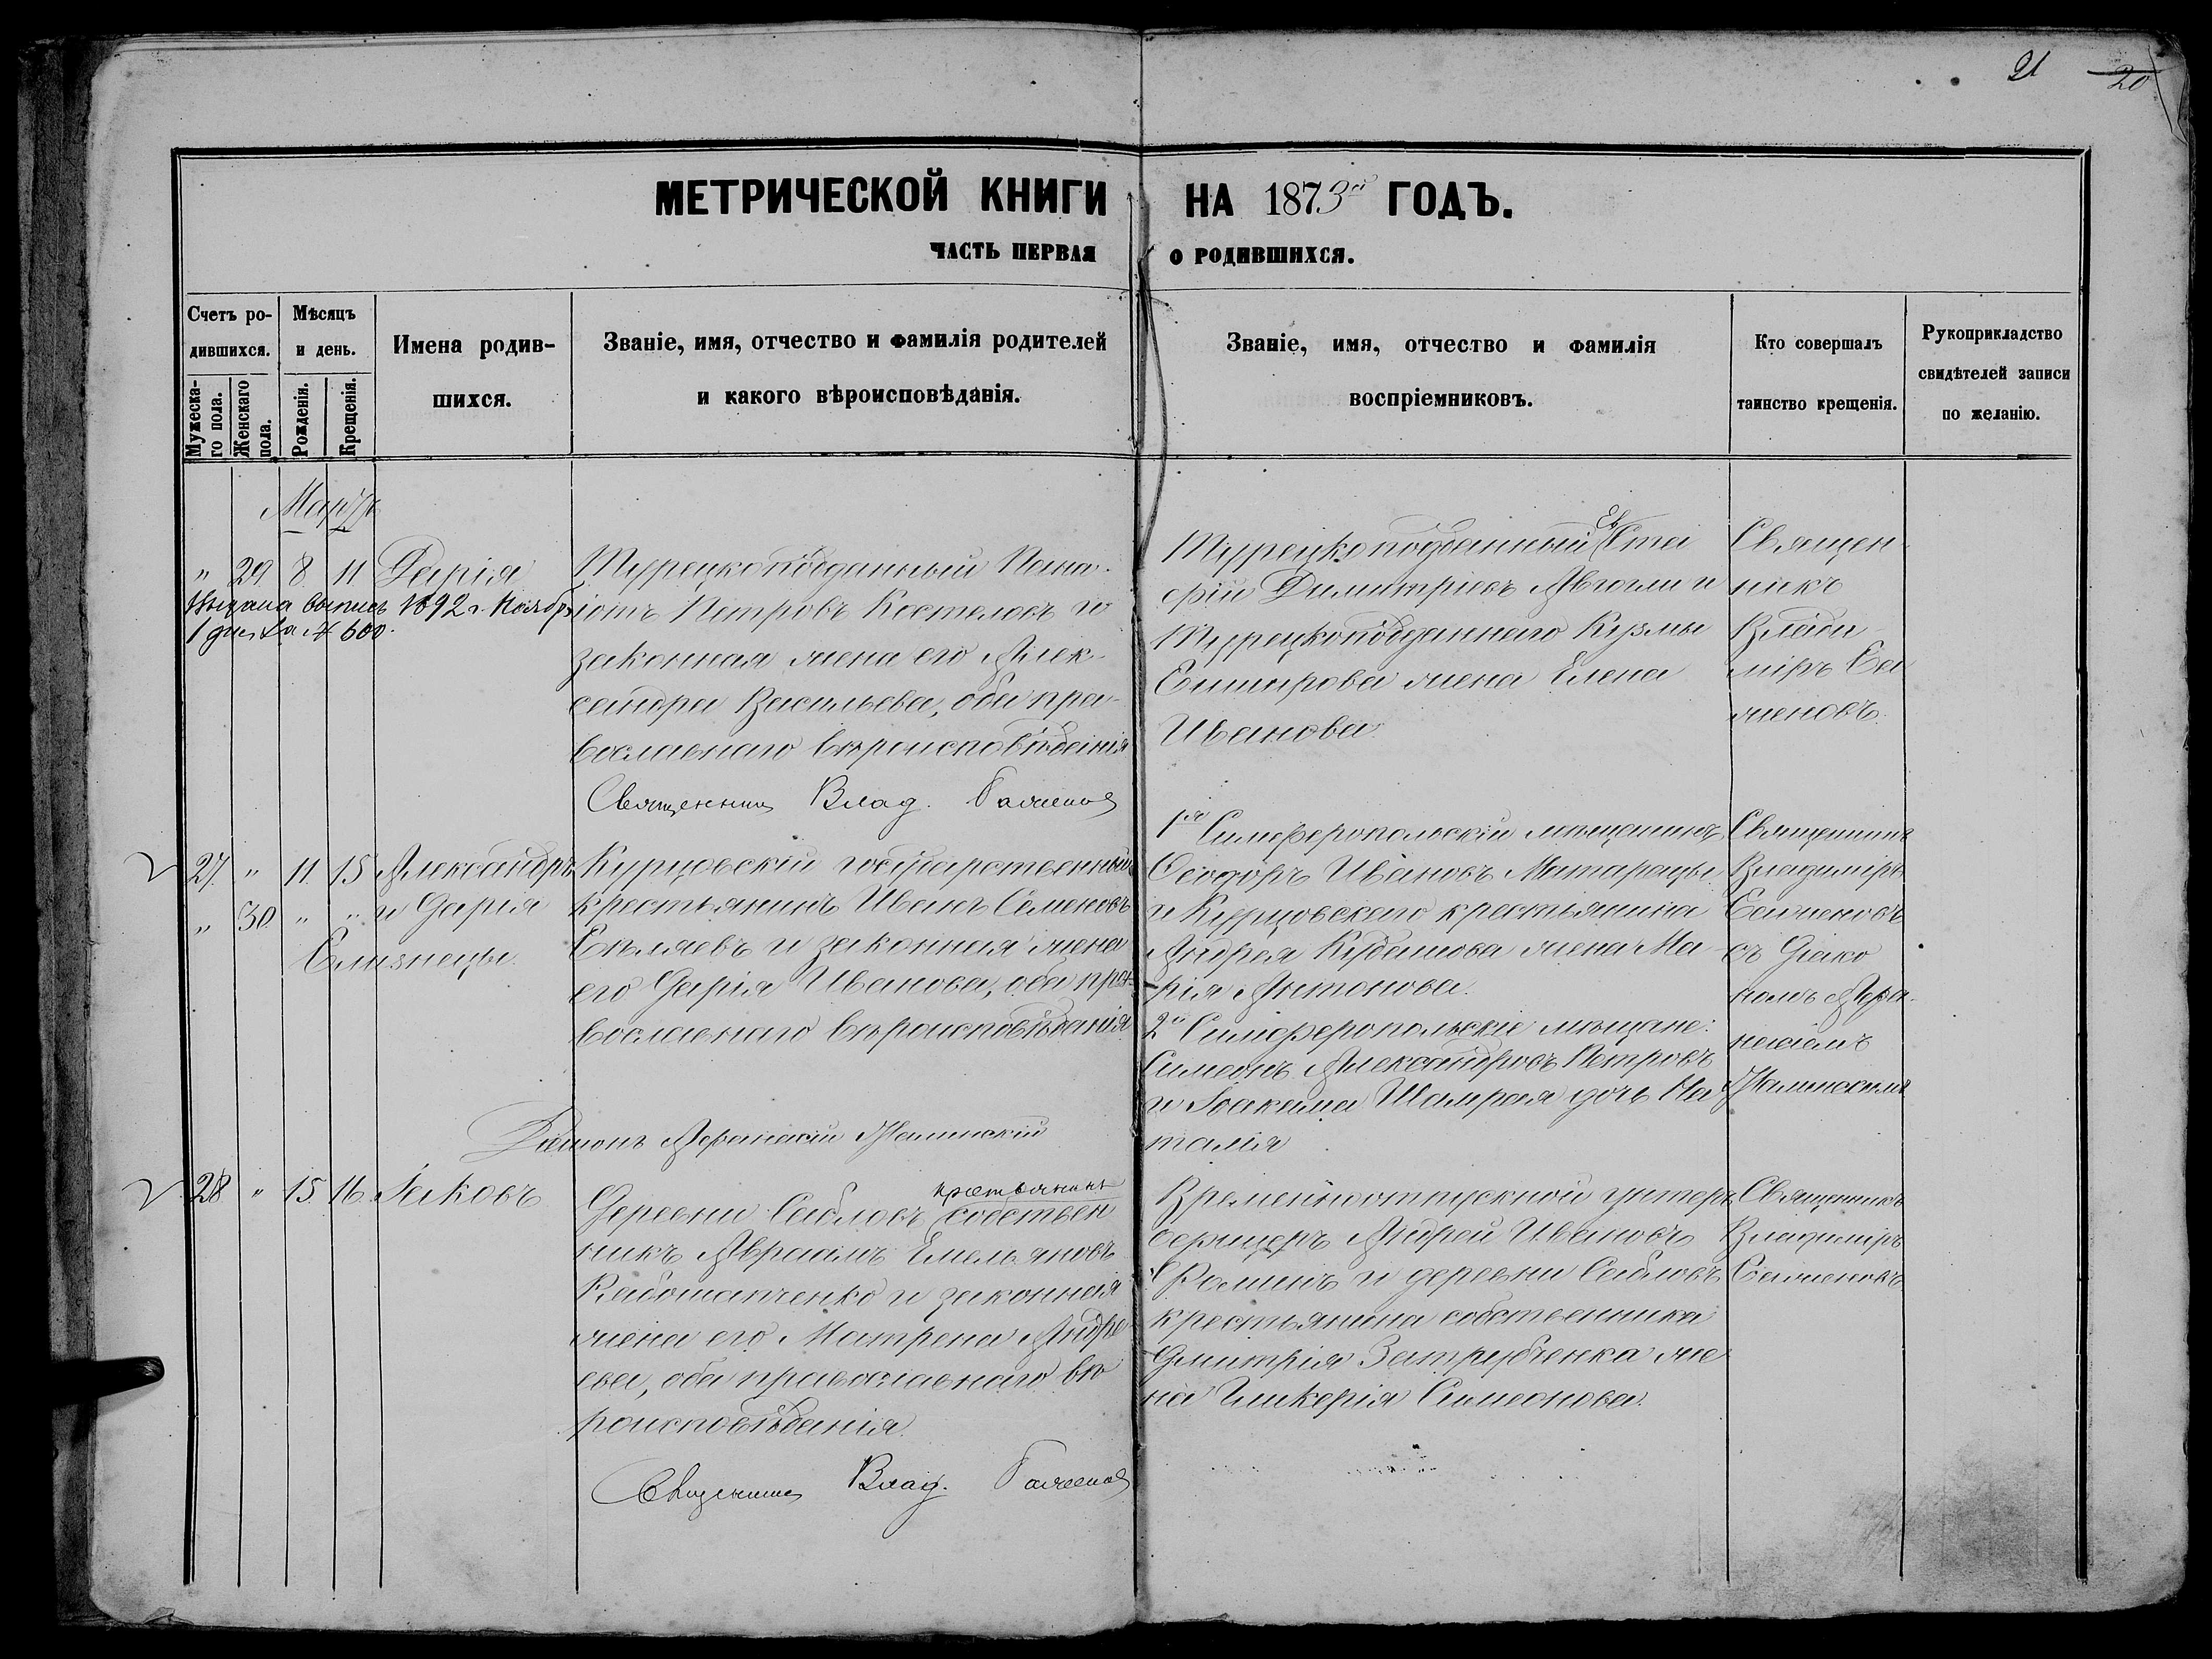 21 20
МЕТРИЧЕСКОЙ КНИГИ НА 1873й ГОДЪ.
ЧАСТЬ ПЕРВАЯ О РОДИВШИХСЯ.
Счетъ ро-
дившихся.
Мужеска-
го пола.
Женскаго
пола.
Мѣсяцъ
и день.
Рожденія.
Крещенія.
Имена родив-
шихся.
Званіе, имя, отчество и фамилія родителей
и какого вѣроисповѣданія.
Званіе, имя, отчество и фамилія
воспріемниковъ.
Кто совершалъ
таинство крещенія.
Рукоприкладство
свидѣтелей записи
по желанію.
Мартъ
" 29. 8. 11 Дарія
Выдана выпись 1892 г. Ноябр
1 дня за № 600.
Турецкоподданный Пана-
іотъ Петровъ Костеловъ и
законная жена его Алек-
сандра Васильева, оба пра-
вославнаго вѣроисповѣданія
Священникъ Влад. Баженовъ
Турецкоподданный Ев Ста
фій Димитріевъ и
Турецкоподданнаго Кузмы
жена Елена
Иванова.
Священ-
никъ
Влади-
міръ Ба
женовъ.
27. " 11. 15 Александръ
" 30 " " и Дарія
Близнецы.
Курцовскій государственный
крестьянинъ Иванъ Семеновъ
Бѣляевъ и законная жена
его Дарія Иванова, оба пра-
вославнаго вѣроисповѣданія
Діаконъ Афанасій
1я Симферопольскій мѣщанинъ
Ѳеодоръ Ивановъ Матарацы
и Курцовскаго крестьянина
Андрея Кудашова жена Ма-
рія Антонова.
2й Симферопольскіе мѣщане:
Симеонъ Александровъ Петровъ
и Іоакима Шамрая дочь На
талія
Священникъ
Владиміръ
Баженовъ
съ Діако
номъ Афа-
насіемъ
28 " 15. 16. Іаковъ
Деревни Сабловъ крестьянинъ собствен
никъ Авраамъ Емельяновъ
и законная
жена его Матрена Андре
ева, оба православнаго вѣ
роисповѣданія.
Священникъ Влад. Баженовъ
Временноотпускной унтеръ
офицеръ Андрей Ивановъ
Фоминъ и деревни Сабловъ
крестьянина собственника
Дмитрія Затрубченка же
на Гликерія Симеонова.
Священникъ
Владиміръ
Баженовъ